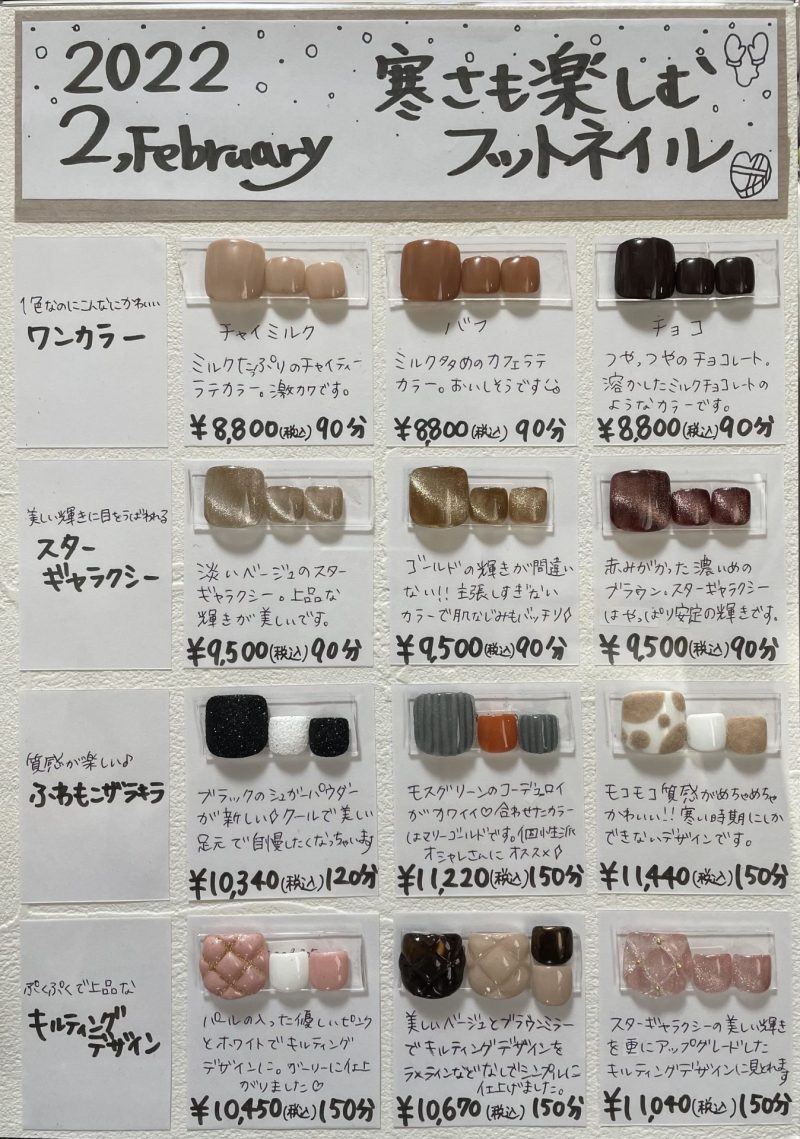 2022
2, February
寒さも楽しむ
フットネイル
1色なのにこんなにかわいい
ワンカラー
チャイミルク
ミルクたっぷりのチャイティー
ラテカラー。激カワです。
¥8,800(税込)90分
バフ
ミルク多めのカフェラテ
カラー。おいしそうです
¥8,800(税込)90分
チョコ
つやっつやのチョコレート。
溶かしたミルクチョコレートの
ようなカラーです。
¥8,800(税込)90分
美しい輝きに目をうばわれる
スター
ギャラクシー
淡いベージュのスター
ギャラクシー。上品な
輝きが美しいです。
¥9,500(税込)90分
ゴールドの輝きが間違い
ない!!主張しすぎない
カラーで肌なじみもバッチリ
¥9,500(税込)90分
赤みがかった濃いめの
ブラウン。スターギャラクシー
はやっぱり安定の輝きです。
¥9,500(税込)90分
質感が楽しい♪
ふわもこザラキラ
ブラックのシュガーパウダー
が新しい クールで美しい
足元で自慢したくなっちゃいます
¥10,340(税込)120分
モスグリーンのコーデュロイ
がカワイイ♡合わせたカラー
はマリーゴールドです。個性派
オシャレさんにオススメ
¥11,220(税込)150分
モコモコ質感がめちゃめちゃ
かわいい!!寒い時期にしか
できないデザインです。
¥11,440(税込)150分
ぷくぷくで上品な
キルティング
デザイン
パールの入った優しいピンク
とホワイトでキルティング
デザインに。ガーリーに仕上
がりました♡
¥10,450(税込)150分
美しいベージュとブラウンミラー
でキルティングデザインを
ラメラインなどなしでシンプルに
仕上げました。
¥10,670(税込)150分
スターギャラクシーの美しい輝き
を更にアップグレードした
キルティングデザインに見とれます
¥11,040(税込)150分